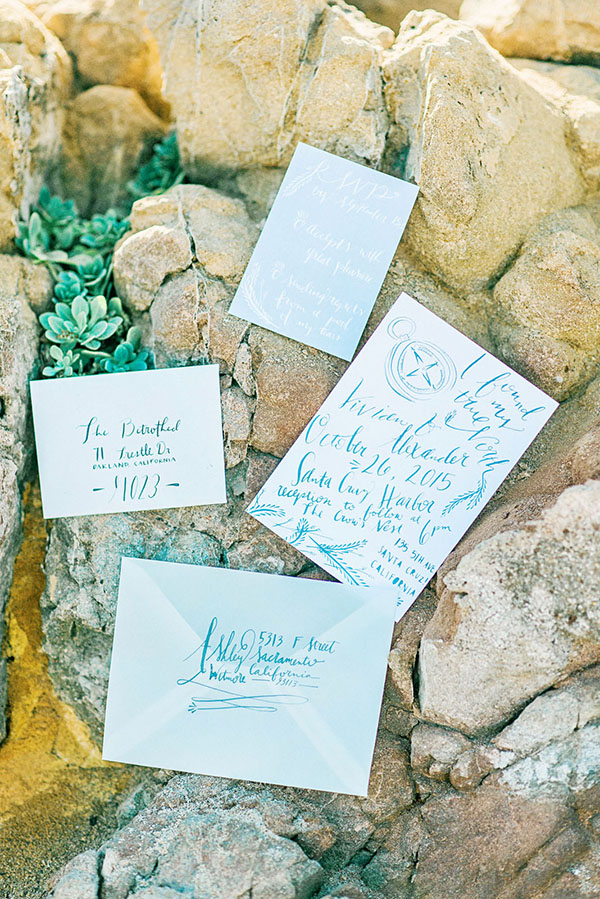 RSVP
by September
Accepts with
great pleasure
sending regrets
from a
of my
I found
my
true
North
Vivien &
Alexander
October
26, 2015
Santa Cruz Harbor
reception to follow at 6pm
The Crow's Nest
135 5TH AVE
SANTA CRUZ
CALIFORNIA
The Betrothed
71 Trestle Dr
OAKLAND, CALIFORNIA
91023
Ashley 5313 F Street
Sacramento
California